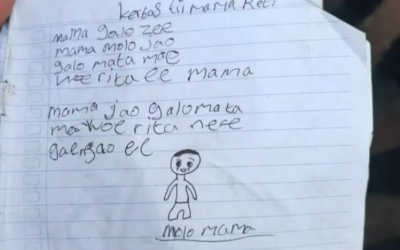 kertas tii mama Reti
mama galo zee
mama molo jao
galo mata mae
woe rita ee mama
mama jao galo mata
ma woe rita nefe
gaengao ee
molo mama